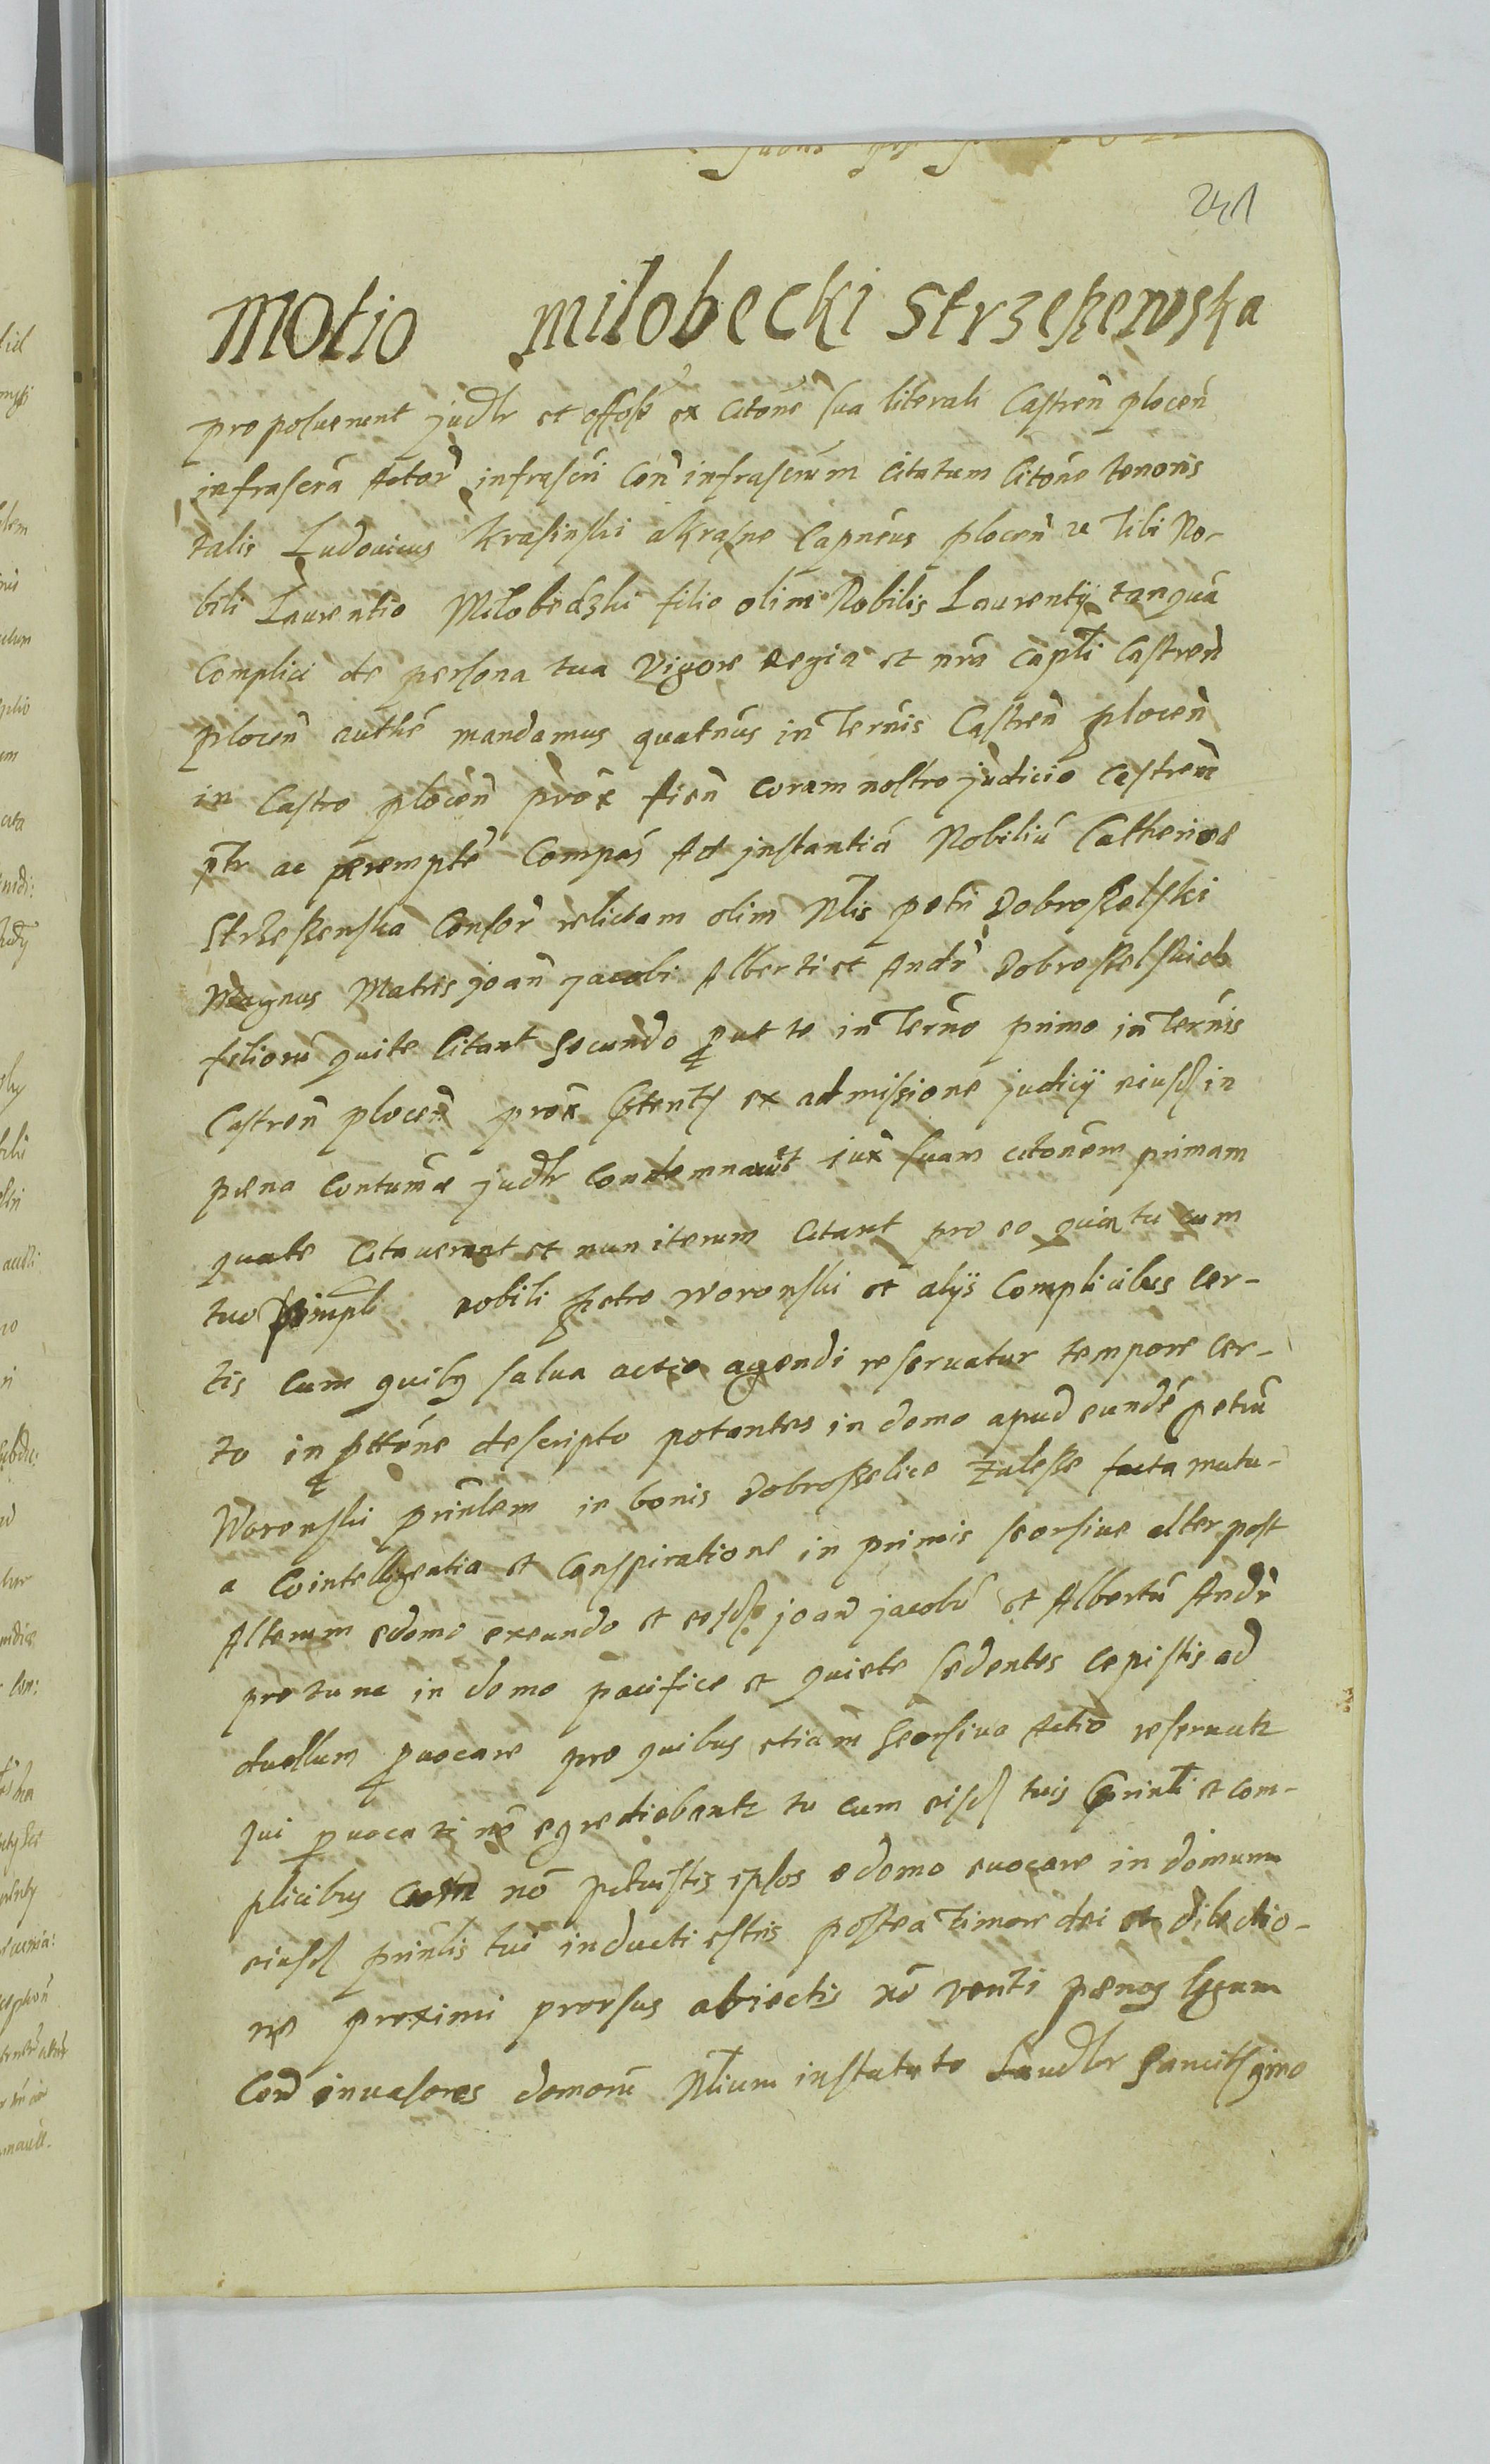 241
Motio Milobecki Strzeßewska
proposuerunt judlr et offose ex citōne sua literali Castren̄ plocen̄
infrascra Actor infrascri Con̄ infrascrūm Citatum Citōne tenoris
talis Ludovicus Krasinski a Krasne Capneus plocen̄ Tibi No-
bili Laurentio Milobēdzki filio olim Nobilis Laurentÿ tanquā
Complici de persona tua Vigore Regia et nrā Capti Castren̄
plocen̄ authe mandamus quatnūs in Ternis Castren̄ plocen̄
in Castro plocen̄ prox fien̄ coram nostro judicio Castren̄
ptr ac perempte Compās Ad jnstantiā Nobiliū Catherinæ
Strzeßewska Consor relictam olim Nlis petri Dobroßelski
Magnus Matris joan̄ jacobi Alberti et Andr Dobroßelskich
filiorū qui te Citant Secundo put te in Terno primo in Ternis
Castren̄ plocen̄ prox ex admissione judicÿ eiusd in
pæna Contumæ judlr Condemnavīt jux suam citōnem primam
qua te Citaverant et nun iterum Citant pro eo quia tu cum
tuo nobili petro Woronski et alÿs Complicibus Cer-
tis cum quibus salva actio agendi reservatur tempore Cer-
to in descripto potantes in domo apud eundē petrū
Woronski prinlem in bonis Dobroßelice Zaleße facta mutu-
a Cointelligentia et Conspiratione in primis seorsive alter post
Alterum e domo exeundo et eosd joan̄ jacobū et Albertū Andr
pro tunc in domo pacifice et quiete sedentes Cepistis ad
duellum puocare pro quibus etiam Seorsiva Actio reservatr
qui puocati nō egrediebantr tu cum eisd tuis prinli et com-
plicibus Cum nō potuistis ipsos e domo evocare in domum
eiusd prinlis tui inducti estis postea Timore dei et dilectio-
ne proximi prorsus abiectis nō venti pænas legum
Con̄ invasores domorū Nlium in statuto Laudlr